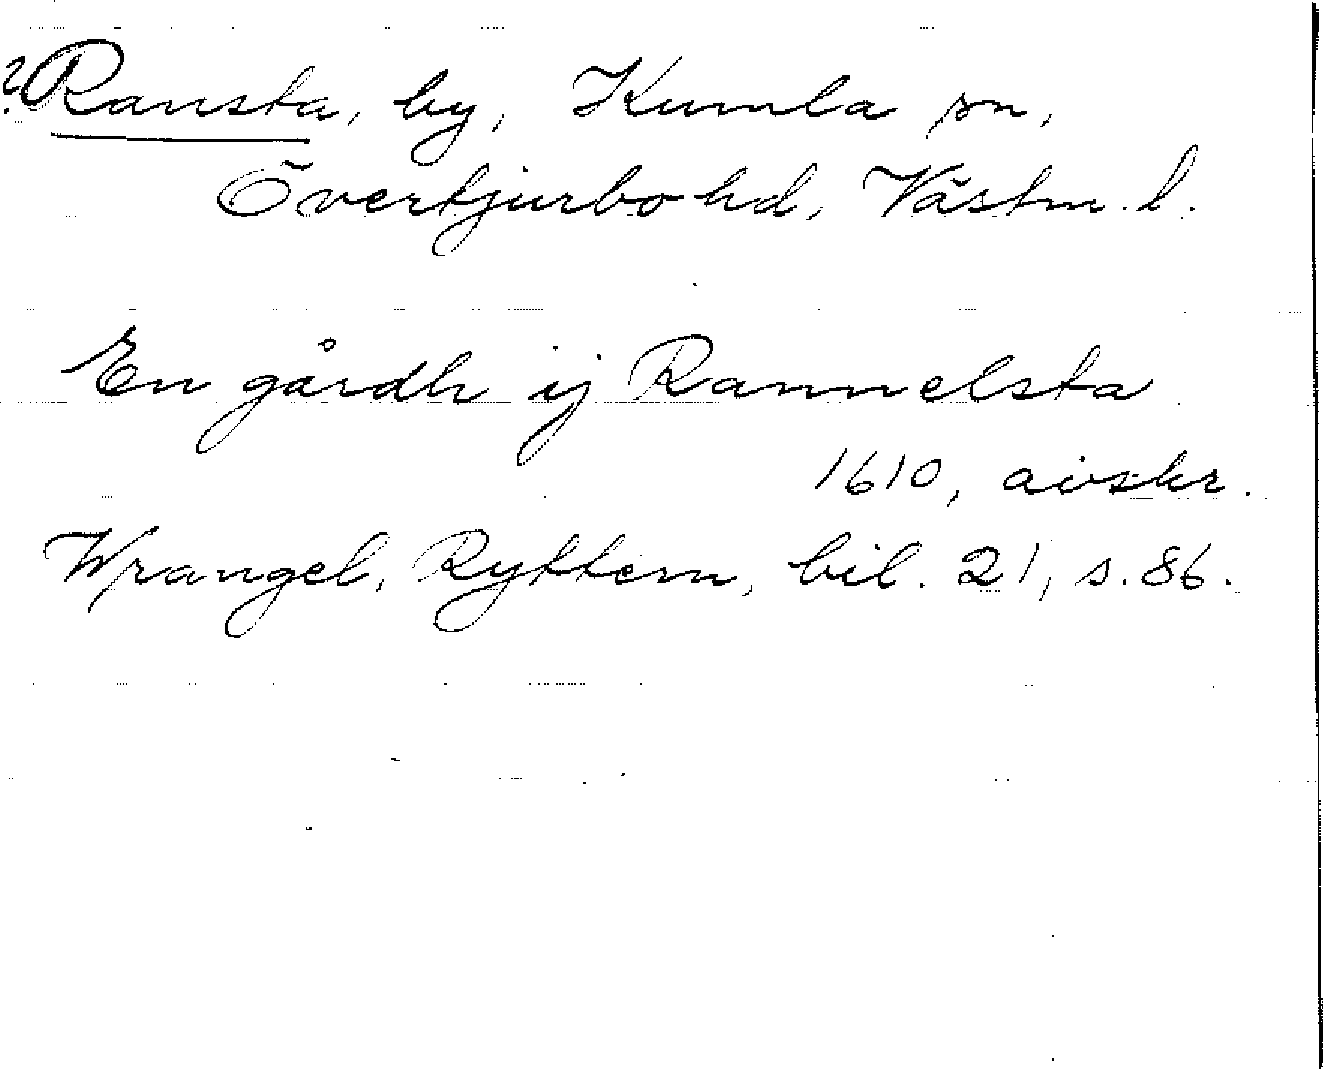 ? Ransta, by, Kumla sn,
Övertjurbo hd, Västm. l.
En gårdh ij Rannelsta
1610, avskr.
Wrangel, Ryttern, bil. 21, s. 86.